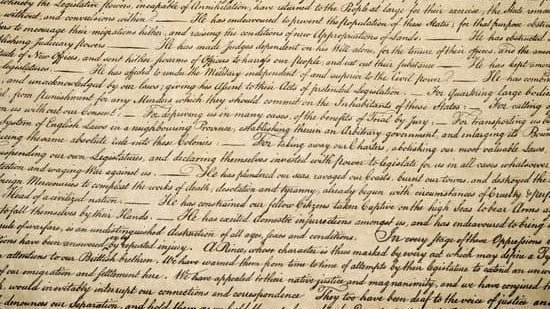 whereby the Legislative powers, incapable of Annihilation, have returned to the People at large for their exercise; the State remain
without, and convulsions within. — He has endeavoured to prevent the population of these States; for that purpose obstruc
to encourage their migrations hither, and raising the conditions of new Appropriations of Lands. — He has obstructed
blishing Judiciary powers. — He has made Judges dependent on his Will alone, for the tenure of their offices, and the amou
tude of New Offices, and sent hither swarms of Officers to harrass our people, and eat out their substance. — He has kept among
Legislatures. — He has affected to render the Military independent of and superior to the Civil power. — He has combin
and unacknowledged by our laws; giving his Assent to their Acts of pretended Legislation: — For Quartering large bodies
from punishment for any Murders which they should commit on the Inhabitants of these States: — For cutting
on us without our Consent: — For depriving us in many cases, of the benefits of Trial by Jury: — For transporting us be
System of English Laws in a neighbouring Province, establishing therein an Arbitrary government, and enlarging its Boun
ducing the same absolute rule into these Colonies: — For taking away our Charters, abolishing our most valuable Laws
spending our own Legislatures, and declaring themselves invested with power to legislate for us in all cases whatsoever.
ction and waging War against us. — He has plundered our seas, ravaged our Coasts, burnt our towns, and destroyed the
reign Mercenaries to compleat the works of death, desolation and tyranny, already begun with circumstances of Cruelty & per
Head of a civilized nation. — He has constrained our fellow Citizens taken Captive on the high Seas to bear Arms a
to fall themselves by their Hands. — He has excited domestic insurrections amongst us, and has endeavoured to bring
rule of warfare, is an undistinguished destruction of all ages, sexes and conditions. In every stage of these Oppressions
tions have been answered by repeated injury. A Prince, whose character is thus marked by every act which may define a Ty
attentions to our Brittish brethren. We have warned them from time to time of attempts by their legislature to extend an unwa
of our emigration and settlement here. We have appealed to their native justice and magnanimity, and we have conjured t
would inevitably interrupt our connections and correspondence. They too have been deaf to the voice of justice and
denounces our Separation, and hold them, as we hold the